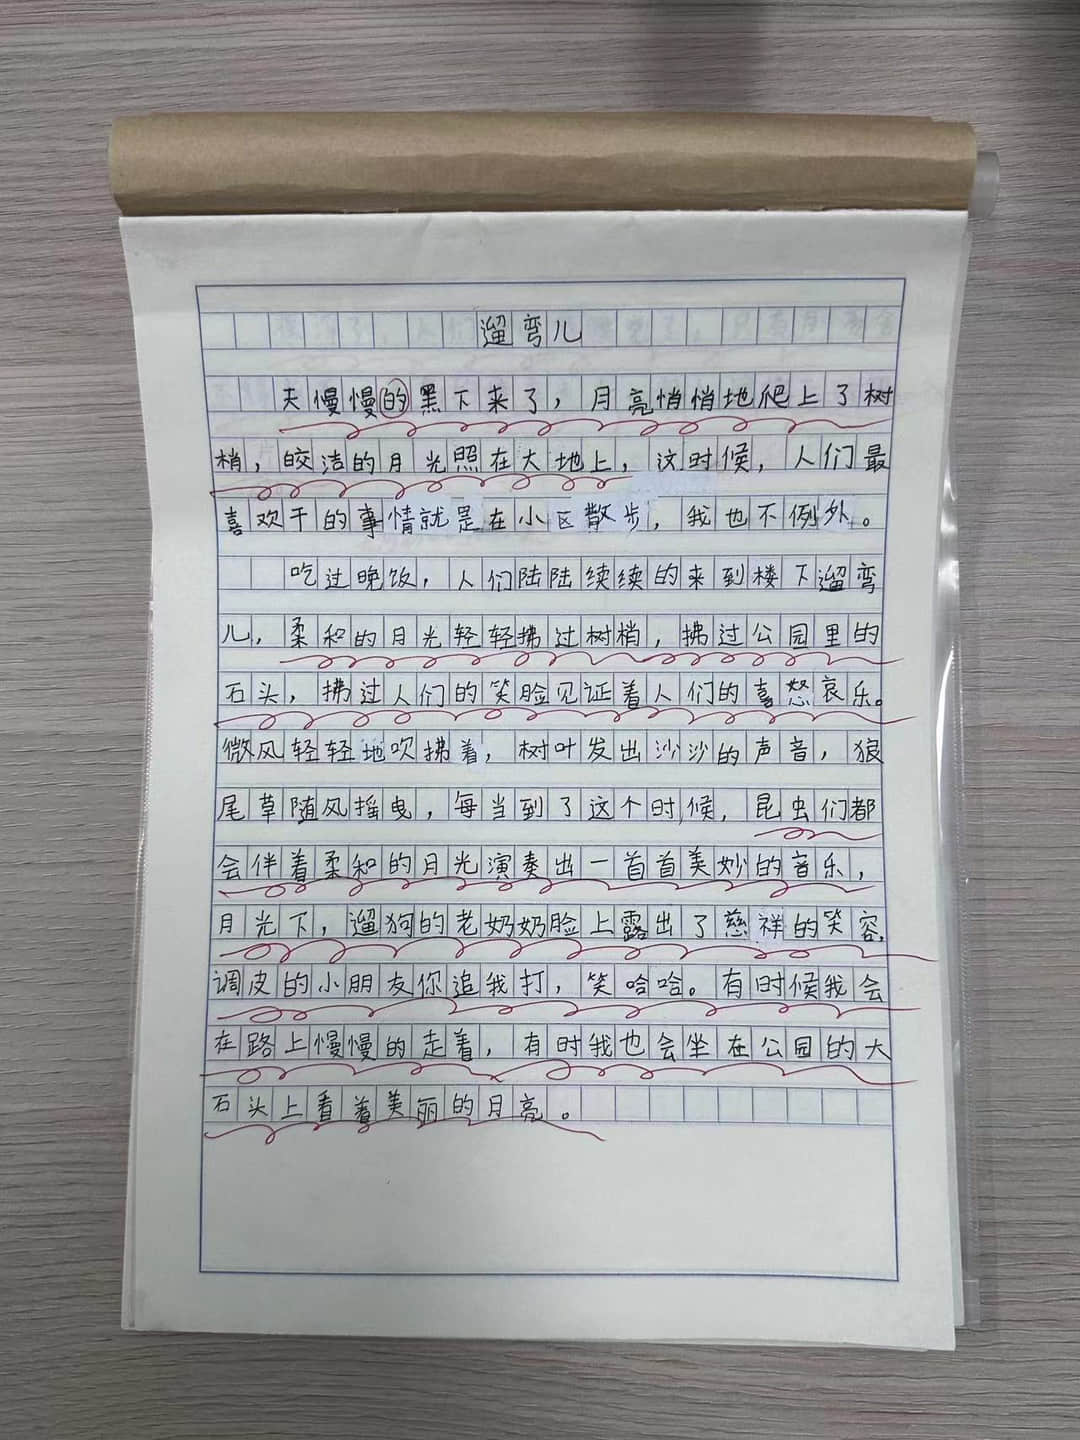 遛弯儿
天慢慢的黑下来了，月亮悄悄地爬上了树
梢，皎洁的月光照在大地上，这时候，人们最
喜欢干的事情就是在小区散步，我也不例外。
吃过晚饭，人们陆陆续续的来到楼下遛弯
儿，柔和的月光轻轻拂过树梢，拂过公园里的
石头，拂过人们的笑脸见证着人们的喜怒哀乐。
微风轻轻地吹拂着，树叶发出沙沙的声音，狼
尾草随风摇曳，每当到了这个时候，昆虫们都
会伴着柔和的月光演奏出一首首美妙的音乐，
月光下，遛狗的老奶奶脸上露出了慈祥的笑容，
调皮的小朋友你追我打，笑哈哈。有时候我会
在路上慢慢的走着，有时我也会坐在公园的大
石头上看着美丽的月亮。